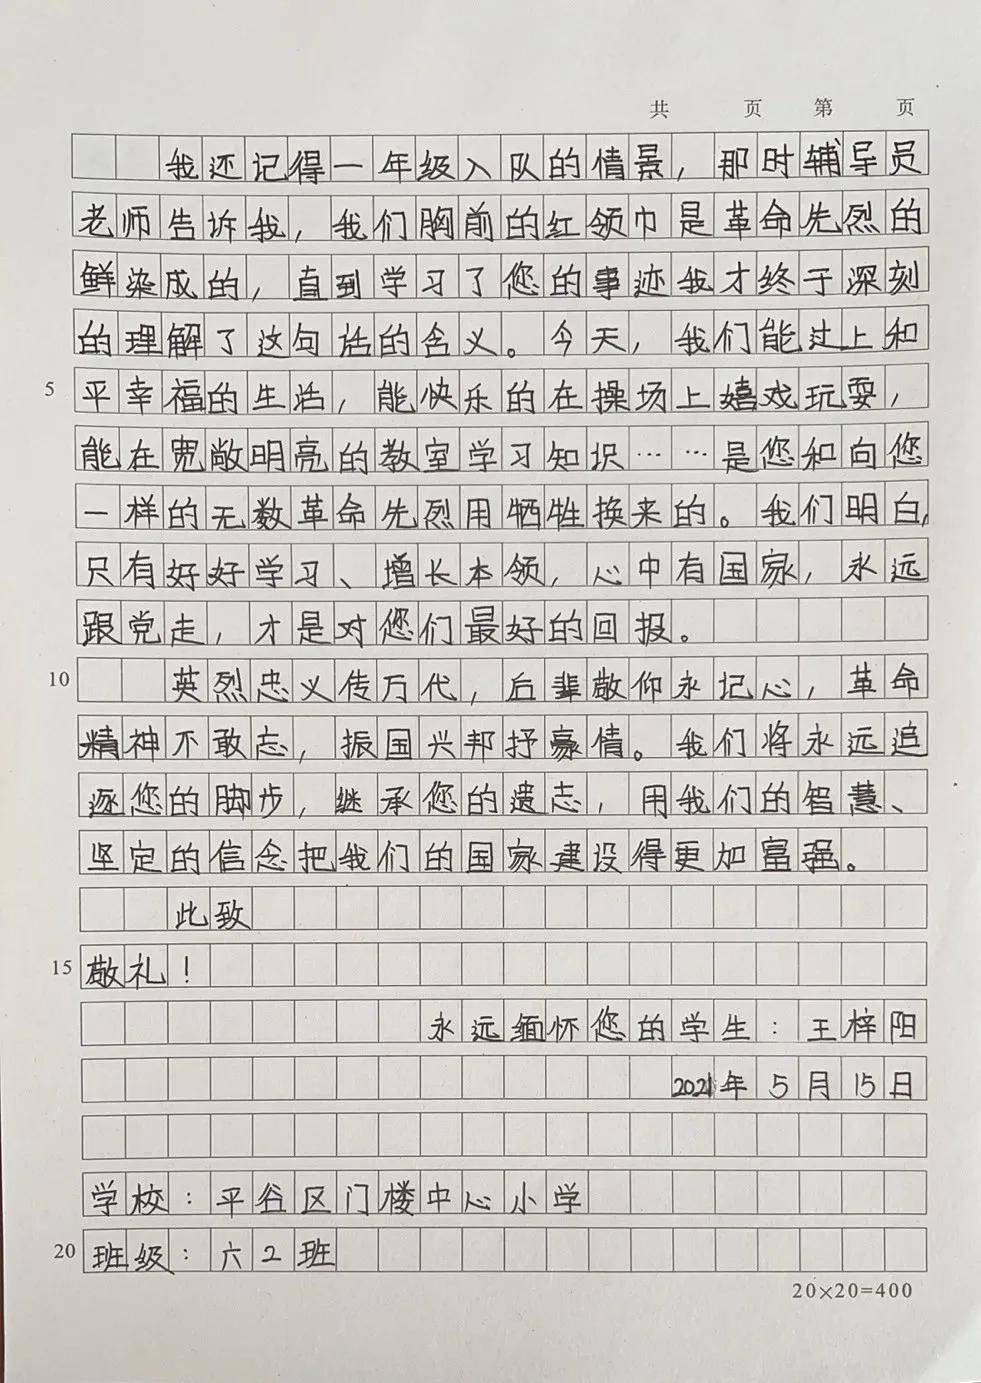 共 页 第 页
我还记得一年级入队的情景，那时辅导员
老师告诉我，我们胸前的红领巾是革命先烈的
鲜染成的，直到学习了您的事迹我才终于深刻
的理解了这句话的含义。今天，我们能过上和
5 平幸福的生活，能快乐的在操场上嬉戏玩耍，
能在宽敞明亮的教室学习知识……是您和向您
一样的无数革命先烈用牺牲换来的。我们明白，
只有好好学习、增长本领，心中有国家，永远
跟党走，才是对您们最好的回报。
10 英烈忠义传万代，后辈敬仰永记心，革命
精神不敢忘，振国兴邦抒豪情。我们将永远追
逐您的脚步，继承您的遗志，用我们的智慧、
坚定的信念把我们的国家建设得更加富强。
此致
15 敬礼！
永远缅怀您的学生：王梓阳
2021年5月15日
学校：平谷区门楼中心小学
20 班级：六2班
20×20=400